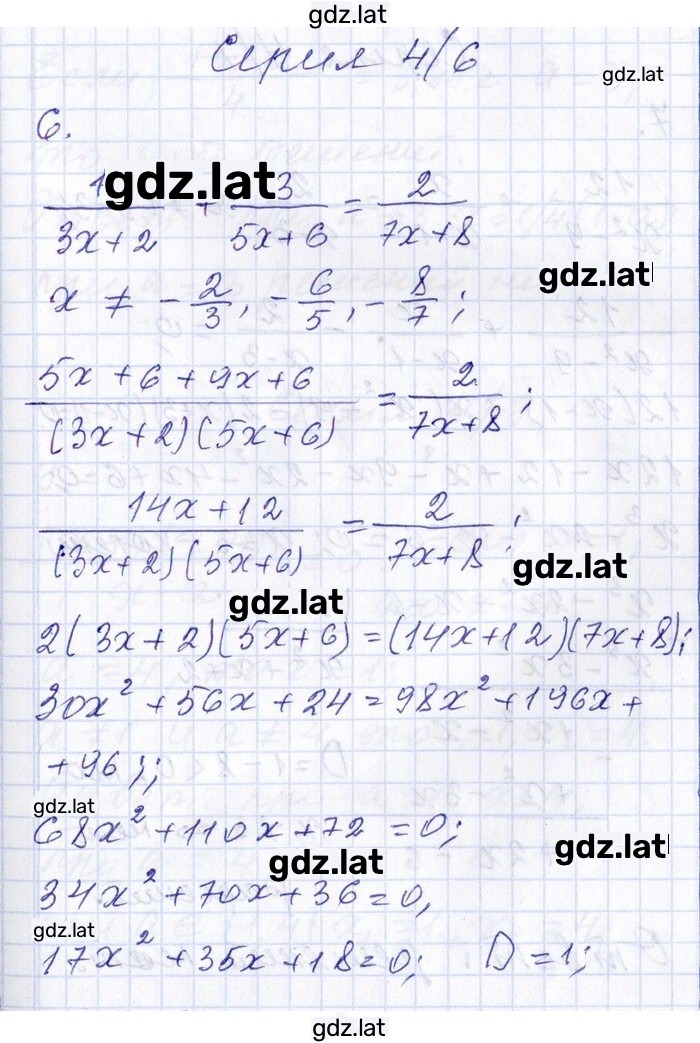 gdz.lat
Серия 4/6
gdz.lat
6.
gdz.lat
1/(3x+2) + 3/(5x+6) = 2/(7x+8)
gdz.lat
x ≠ -2/3, -6/5, -8/7;
(5x+6+9x+6)/((3x+2)(5x+6)) = 2/(7x+8);
(14x+12)/((3x+2)(5x+6)) = 2/(7x+8);
gdz.lat
gdz.lat
2(3x+2)(5x+6)=(14x+12)(7x+8);
30x²+56x+24=98x²+196x+
+96;;
gdz.lat
68x²+110x+72=0;
gdz.lat
gdz.lat
34x²+70x+36=0,
gdz.lat
17x²+35x+18=0; D=1;
gdz.lat